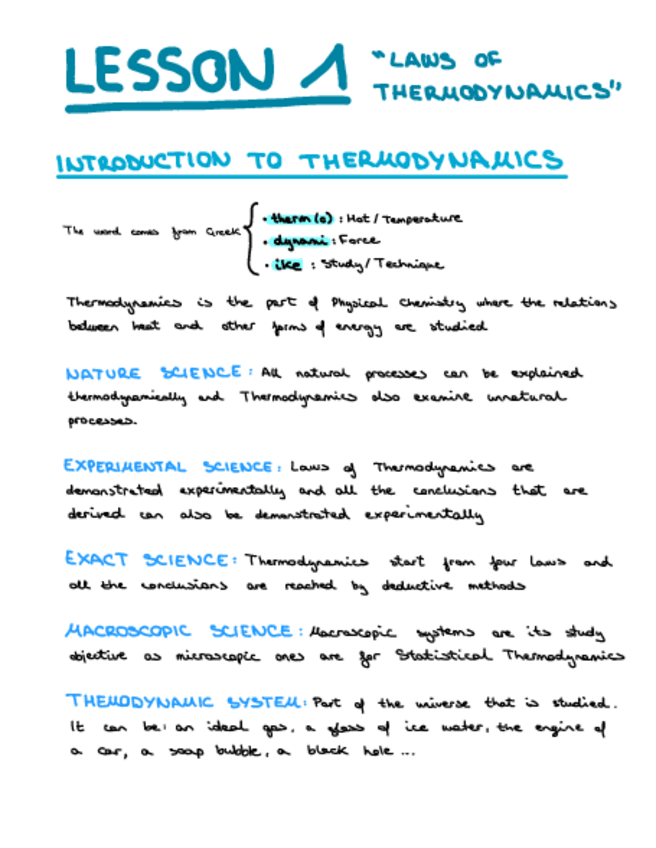 LESSON 1 "LAWS OF
THERMODYNAMICS"
INTRODUCTION TO THERMODYNAMICS
The word comes from Greek
· therm(o) : Hot / Temperature
· dynami : Force
· ike : Study / Technique
Thermodynamics is the part of Physical Chemistry where the relations
between heat and other forms of energy are studied
NATURE SCIENCE: All natural processes can be explained
thermodynamically and Thermodynamics also examine unnatural
processes.
EXPERIMENTAL SCIENCE: Laws of Thermodynamics are
demonstrated experimentally and all the conclusions that are
derived can also be demonstrated experimentally
EXACT SCIENCE: Thermodynamics start from four laws and
all the conclusions are reached by deductive methods
MACROSCOPIC SCIENCE: Macroscopic systems are its study
objective as microscopic ones are for Statistical Thermodynamics
THEMODYNAMIC SYSTEM: Part of the universe that is studied.
It can be: an ideal gas, a glass of ice water, the engine of
a car, a soap bubble, a black hole ...